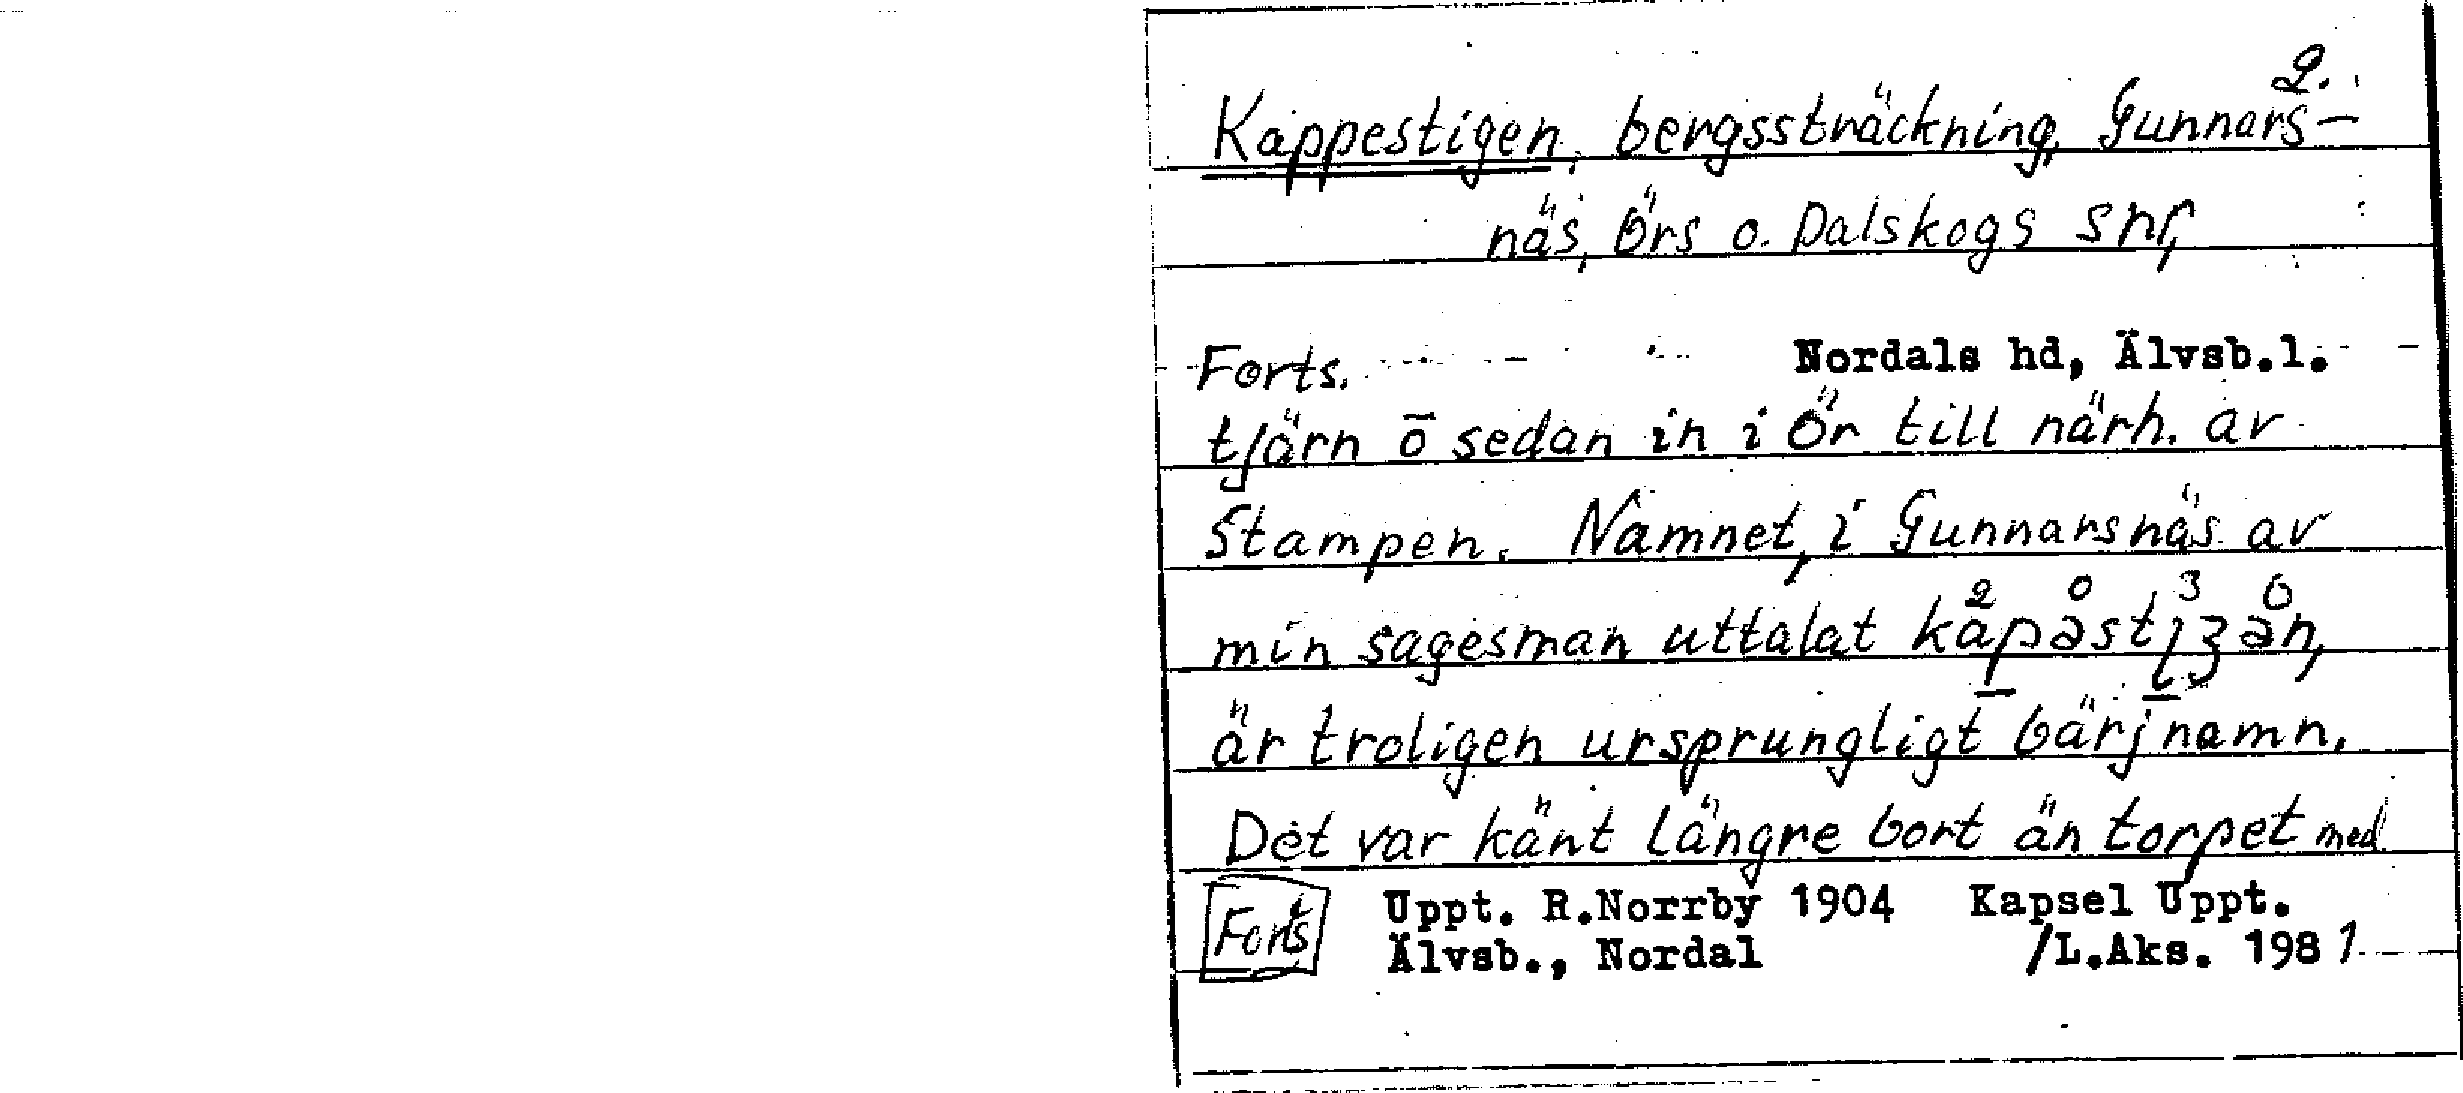 2.
Kappestigen, bergssträckning, Gunnars-
näs, Örs o. Dalskogs snr,
Forts. Nordals hd, Älvsb.l.
tjärn o̅ sedan in i Ör till närh. av
Stampen. Namnet, i Gunnarsnäs av
min sagesman uttalat
är troligen ursprungligt bärjnamn.
Det var känt längre bort än torpet med
Forts Uppt. R.Norrby 1904 Kapsel Uppt.
Älvsb., Nordal /L.Aks. 1981